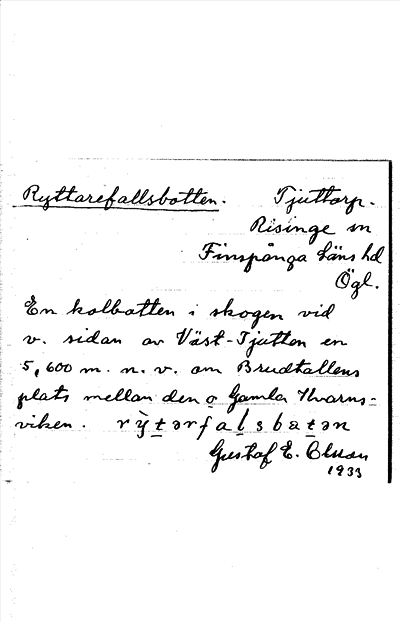 Ryttarefallsbotten. Tjuttorp.
Risinge sn
Finspånga läns hd
Ögl.
En kolbotten i skogen vid
v. sidan av Väst-Tjutten en
5,600 m. n. v. om Brudtallens
plats mellan den o Gamla Kvarns=
viken. rỳtərfalsbatən
Gustaf E. Olsson
1933